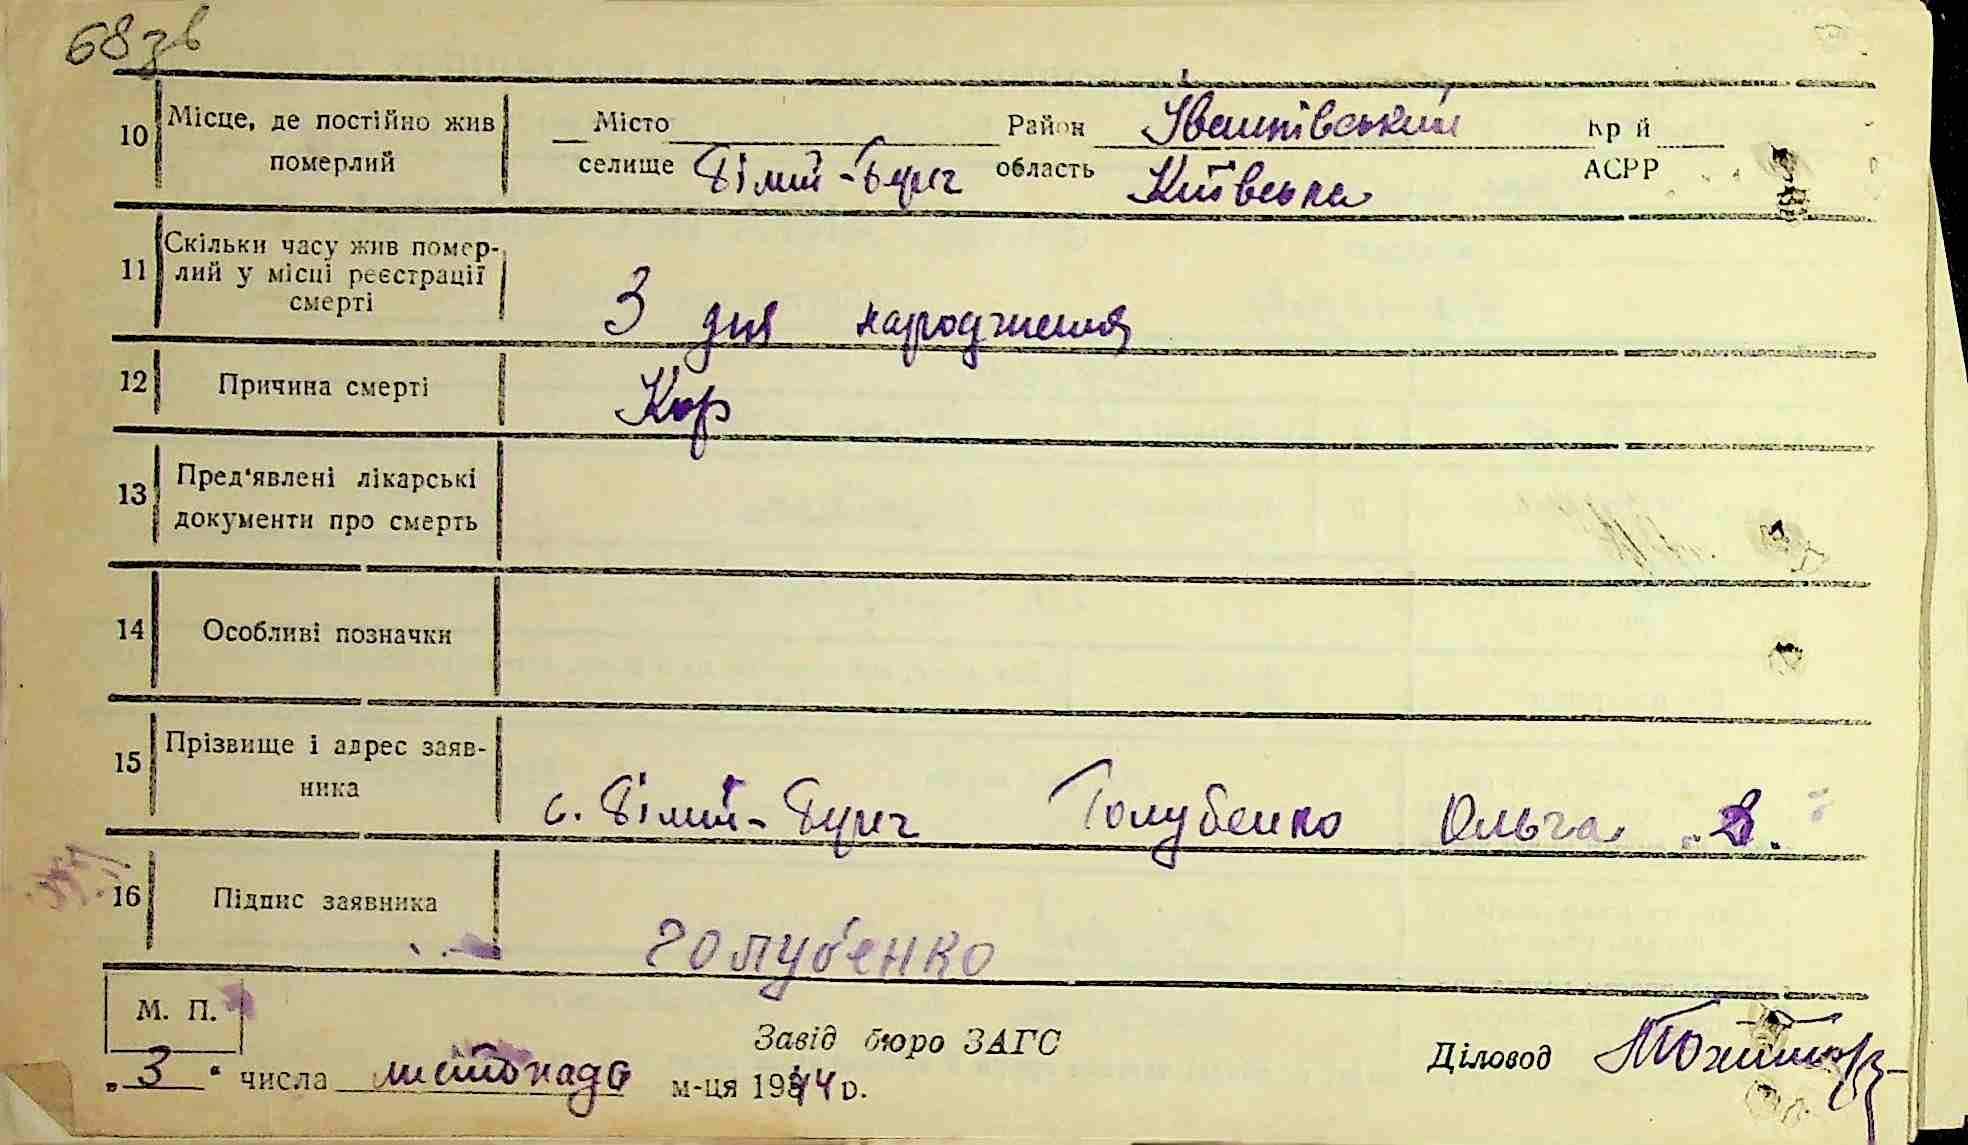 68 зв
10 Місце, де постійно жив померлий
Місто Район Іванківський Край
селище Білий-Берег область Київська АСРР
11 Скільки часу жив помер-
лий у місці реєстрації
смерті
З дня народження
12 Причина смерті Кор
13 Пред'явлені лікарські
документи про смерть
14 Особливі позначки
15 Прізвище і адрес заяв-
ника
с. Білий-Берег Голубенко Ольга
16 Підпис заявника голубенко
М. П.
Завід бюро ЗАГС
Діловод
„3" числа листопада м-ця 1944 р.